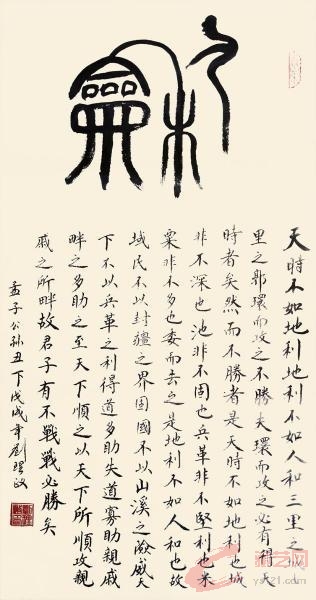 龢
天時不如地利地利不如人和三里之城
里之郭環而攻之不勝夫環而攻之必有得天
時者矣然而不勝者是天時不如地利也城
非不深也池非不固也兵革非不堅利也米
粟非不多也委而去之是地利不如人和也故
域民不以封疆之界固國不以山溪之險威天
下不以兵革之利得道多助失道寡助親戚
畔之多助之至天下順之以天下所順攻親
戚之所畔故君子有不戰戰必勝矣
孟子公孫丑下戊戌年劉